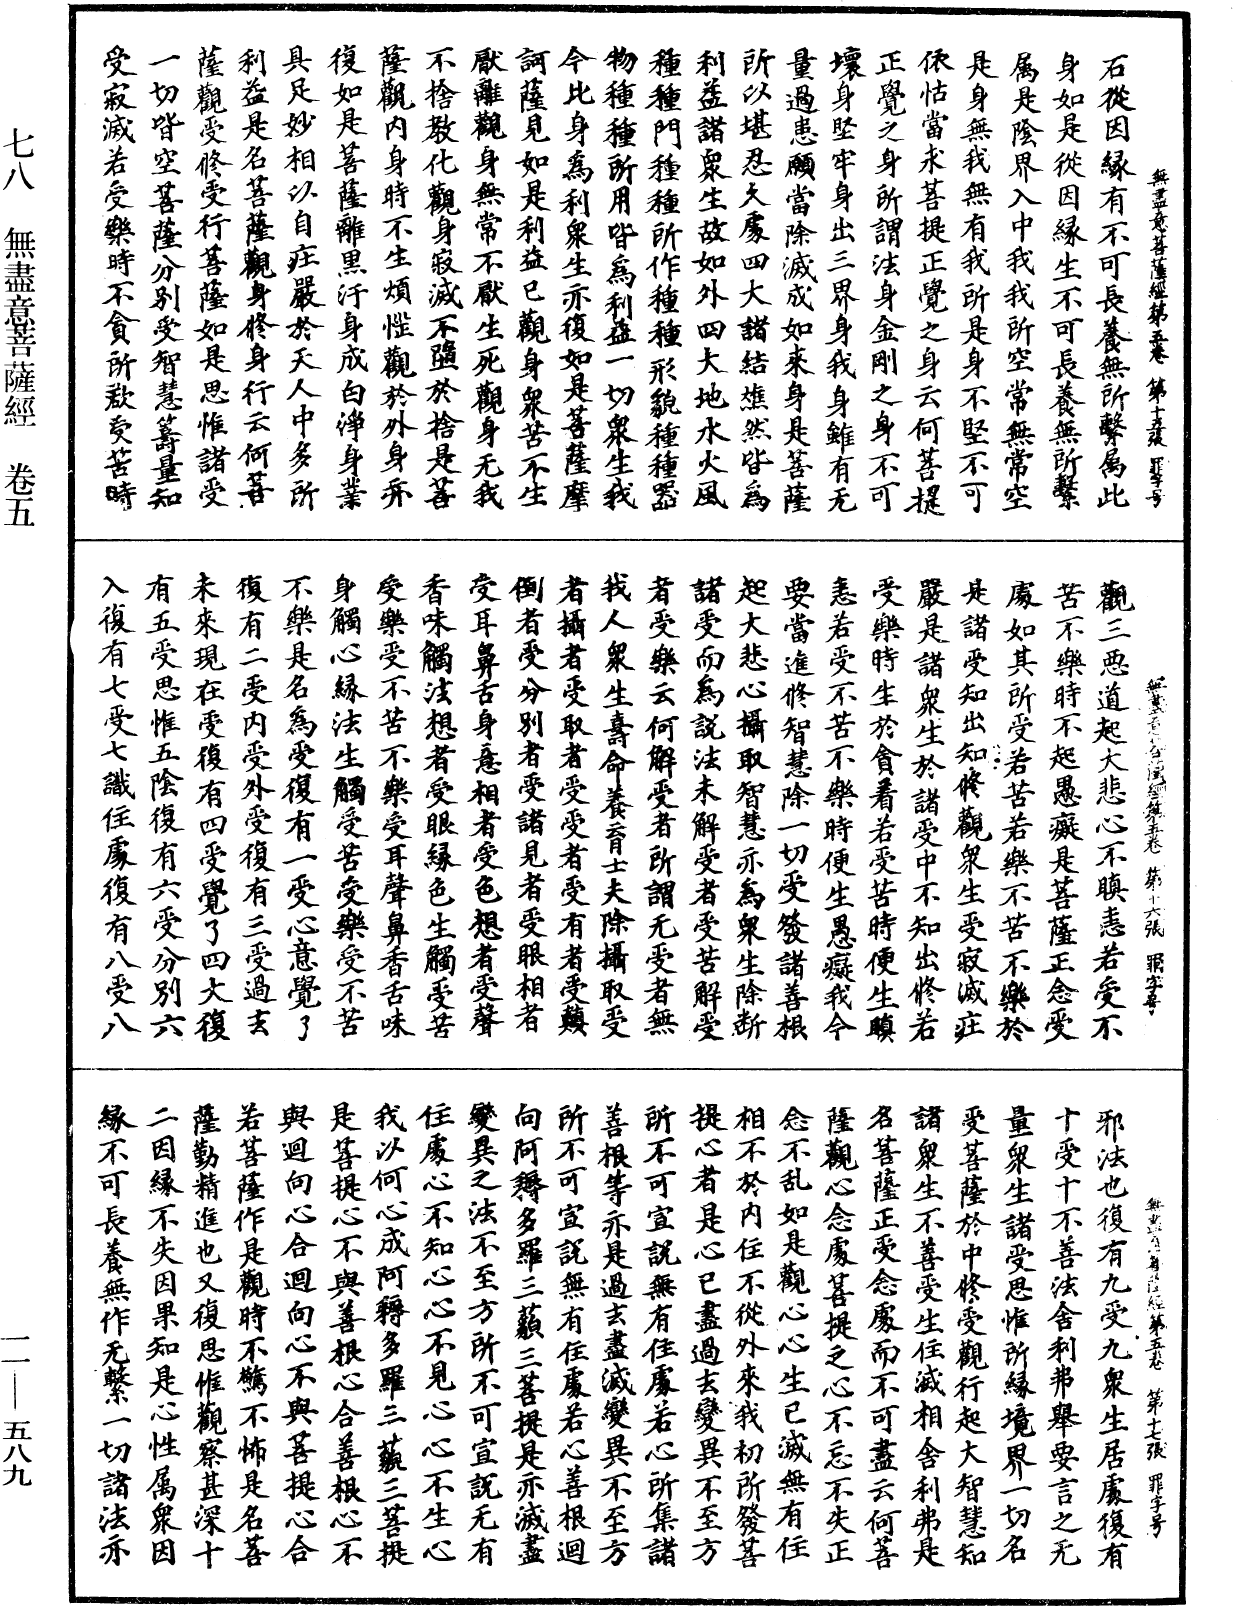 七八 無盡意菩薩經 卷五
一一—五八九
無盡意菩薩經第五卷 第十五張 罪字号
石從因緣有不可長養無所繫属此
身如是從因緣生不可長養無所繫
属是陰界入中我我所空常無常空
是身無我無有我所是身不堅不可
依怙當求菩提正覺之身云何菩提
正覺之身所謂法身金剛之身不可
壞身堅牢身出三界身我身雖有无
量過患願當除滅成如來身是菩薩
所以堪忍久處四大諸結雄然皆為
利益諸衆生故如外四大地水火風
種種門種種所作種種形貌種種器
物種種所用皆為利益一切衆生我
今此身為利衆生亦復如是菩薩摩
訶薩見如是利益已觀身衆苦不生
厭離觀身無常不厭生死觀身无我
不捨教化觀身寂滅不墮於捨是菩
薩觀內身時不生煩惱觀於外身亦
復如是菩薩離黒汙身成白淨身業
具足妙相以自莊嚴於天人中多所
利益是名菩薩觀身修身行云何菩
薩觀受修受行菩薩如是思惟諸受
一切皆空菩薩分别受智慧籌量知
受寂滅若受樂時不貪所欲受苦時
第十六張 罪字号
觀三惡道起大悲心不瞋恚若受不
苦不樂時不起愚癡是菩薩正念受
處如其所受若苦若樂不苦不樂於
是諸受知出知修觀衆生受寂滅莊
嚴是諸衆生於諸受中不知出修若
受樂時生於貪著若受苦時便生瞋
恚若受不苦不樂時便生愚癡我今
要當進修智慧除一切受發諸善根
起大悲心攝取智慧亦為衆生除断
諸受而為說法未解受者受苦解受
者受樂云何解受者所謂无受者無
我人衆生壽命養育士夫除攝取受
者攝者受取者受受者受有者受顛
倒者受分别者受諸見者受眼相者
受耳鼻舌身意相者受色想者受聲
香味觸法想者受眼緣色生觸受苦
受樂受不苦不樂受耳聲鼻香舌味
身觸心緣法生觸受苦受樂受不苦
不樂是名為受復有一受心意覺了
復有二受內受外受復有三受過去
未來現在受復有四受覺了四大復
有五受思惟五陰復有六受分别六
入復有七受七識住處復有八受八
無盡意菩薩經第五卷 第十七張 罪字号
邪法也復有九受九衆生居處復有
十受十不善法舍利弗舉要言之无
量衆生諸受思惟所緣境界一切名
受菩薩於中修受觀行起大智慧知
諸衆生不善受生住滅相舍利弗是
名菩薩正受念處而不可盡云何菩
薩觀心念處菩提之心不忘不失正
念不乱如是觀心心生已滅無有住
相不於內住不從外來我初所發菩
提心者是心已盡過去變異不至方
所不可宣說無有住處若心所集諸
善根等亦是過去盡滅變異不至方
所不可宣說無有住處若心善根迴
向阿耨多羅三藐三菩提是亦滅盡
變異之法不至方所不可宣說无有
住處心不知心心不見心心不生心
我以何心成阿耨多羅三藐三菩提
是菩提心不與善根心合善根心不
與迴向心合迴向心不與菩提心合
若菩薩作是觀時不驚不怖是名菩
薩勤精進也又復思惟觀察甚深十
二因緣不失因果知是心性属衆因
緣不可長養無作无繫一切諸法亦